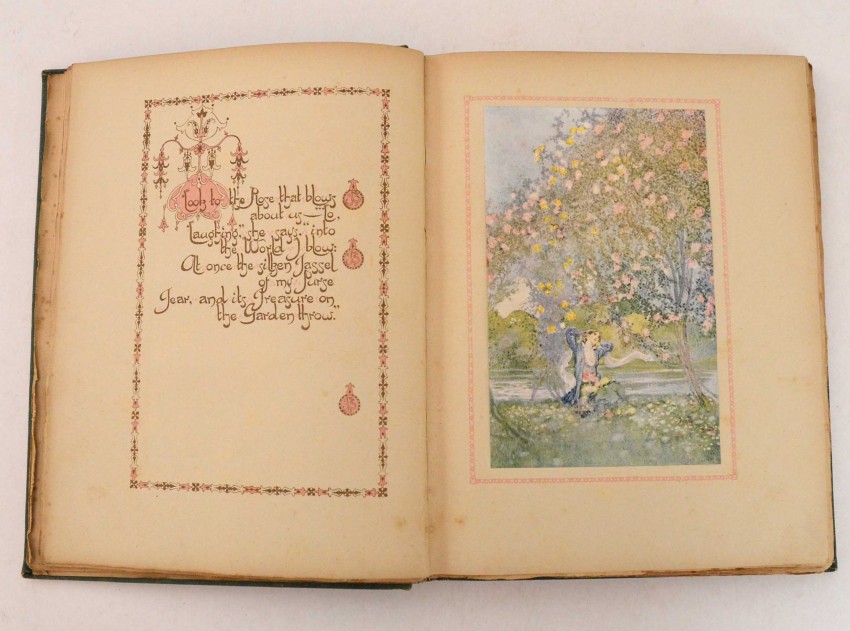 "Look to the Rose that blows
about us—"Lo,
Laughing," she says, "into
the World I blow:
At once the silken Tassel
of my Purse
Tear, and its Treasure on
the Garden throw."